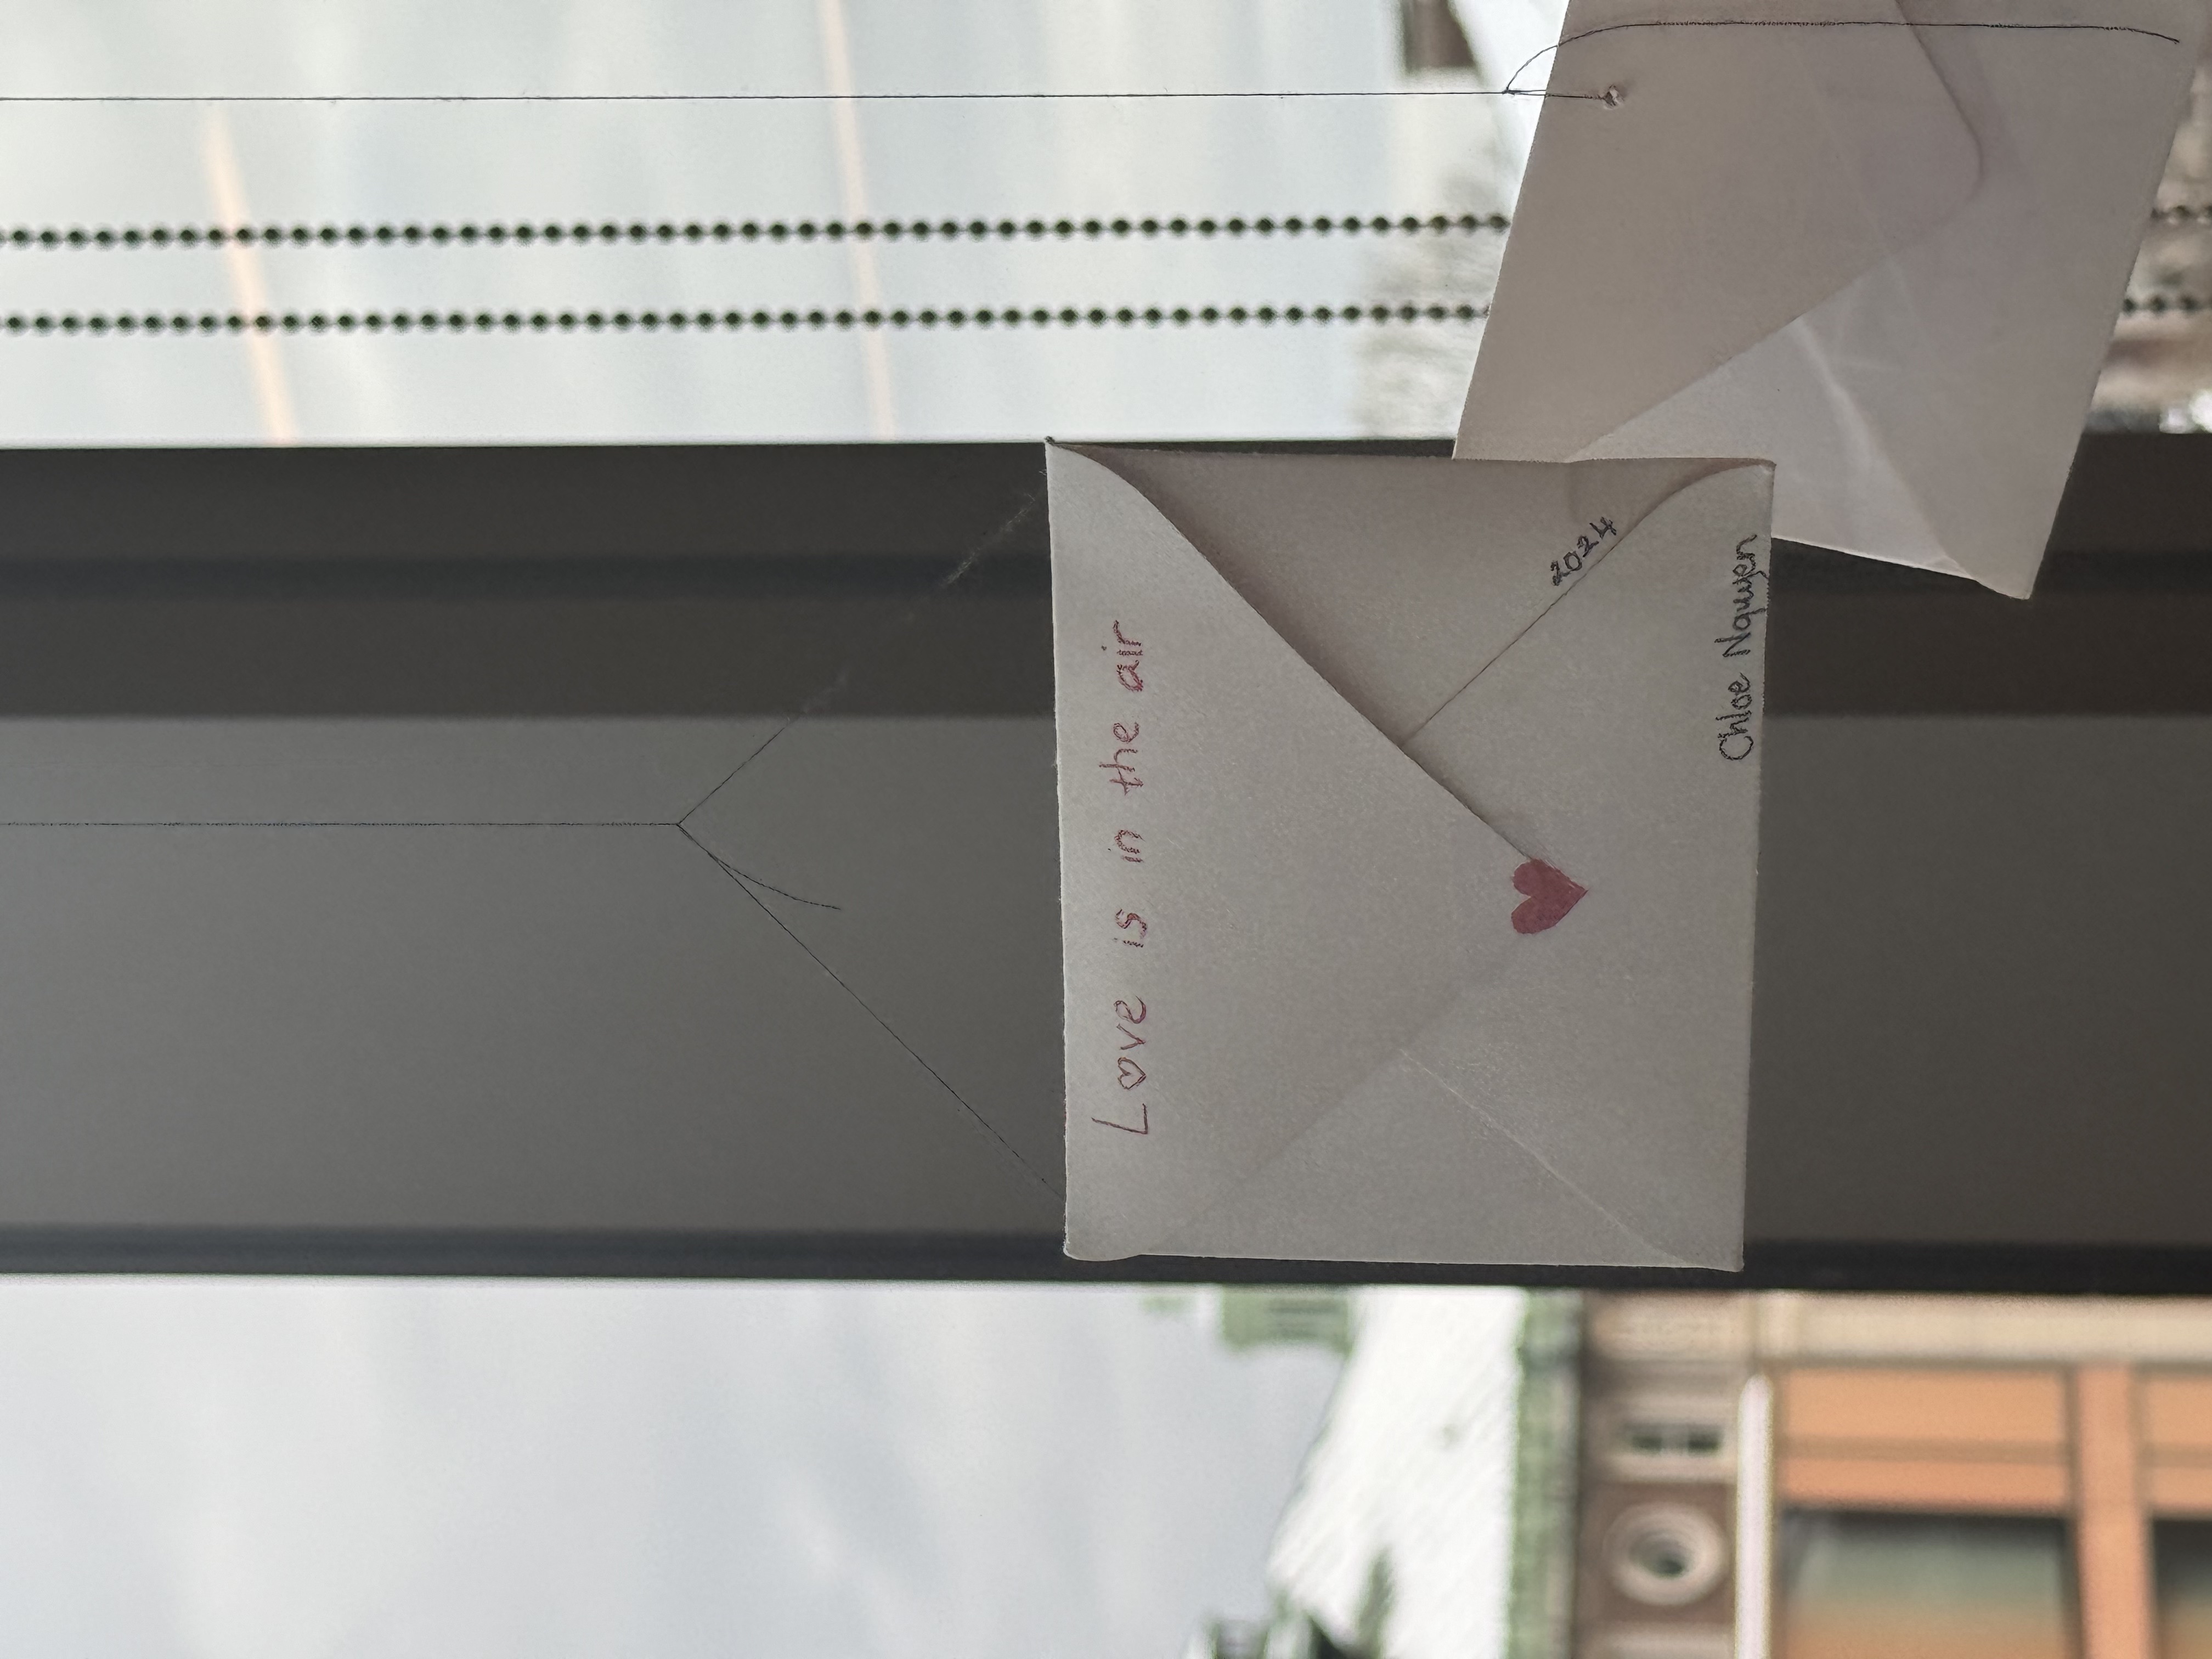 Love is in the air
2024
Chloe Nguyen